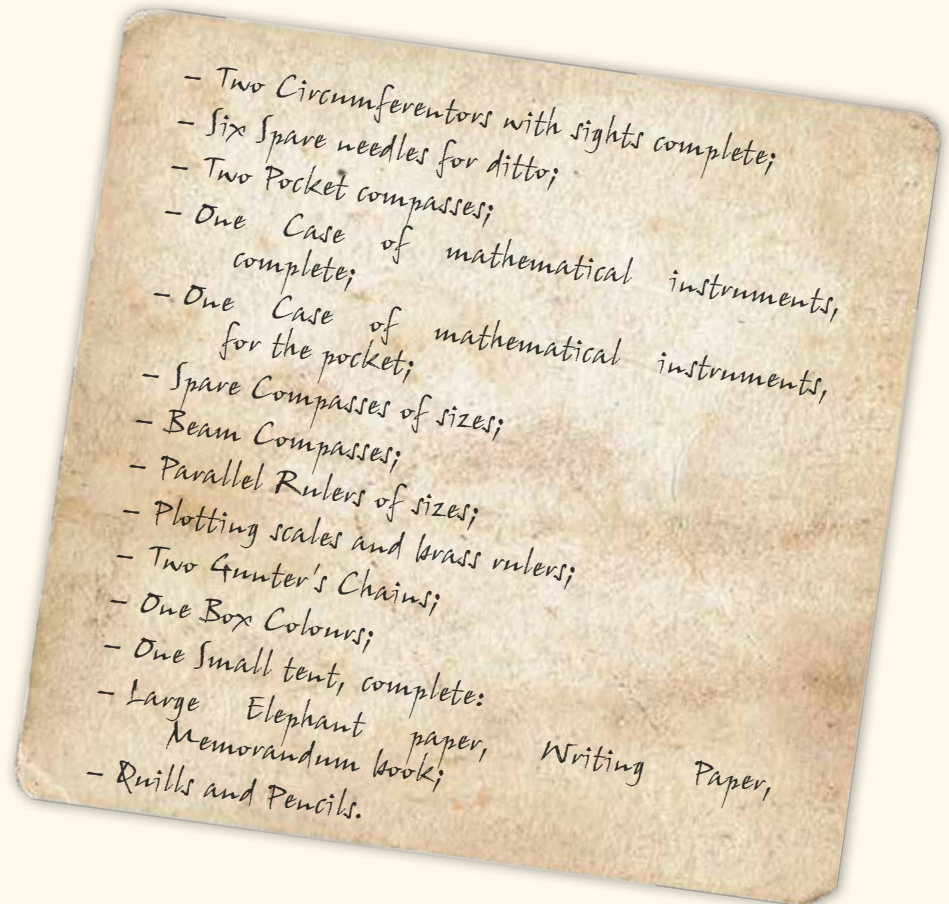 – Two Circumferentors with sights complete;
– Six Spare needles for ditto;
– Two Pocket compasses;
– One Case of mathematical instruments,
complete;
– One Case of mathematical instruments,
for the pocket;
– Spare Compasses of sizes;
– Beam Compasses;
– Parallel Rulers of sizes;
– Plotting scales and brass rulers;
– Two Gunter's Chains;
– One Box Colours;
– One Small tent, complete:
– Large Elephant paper, Writing Paper,
Memorandum book;
– Quills and Pencils.